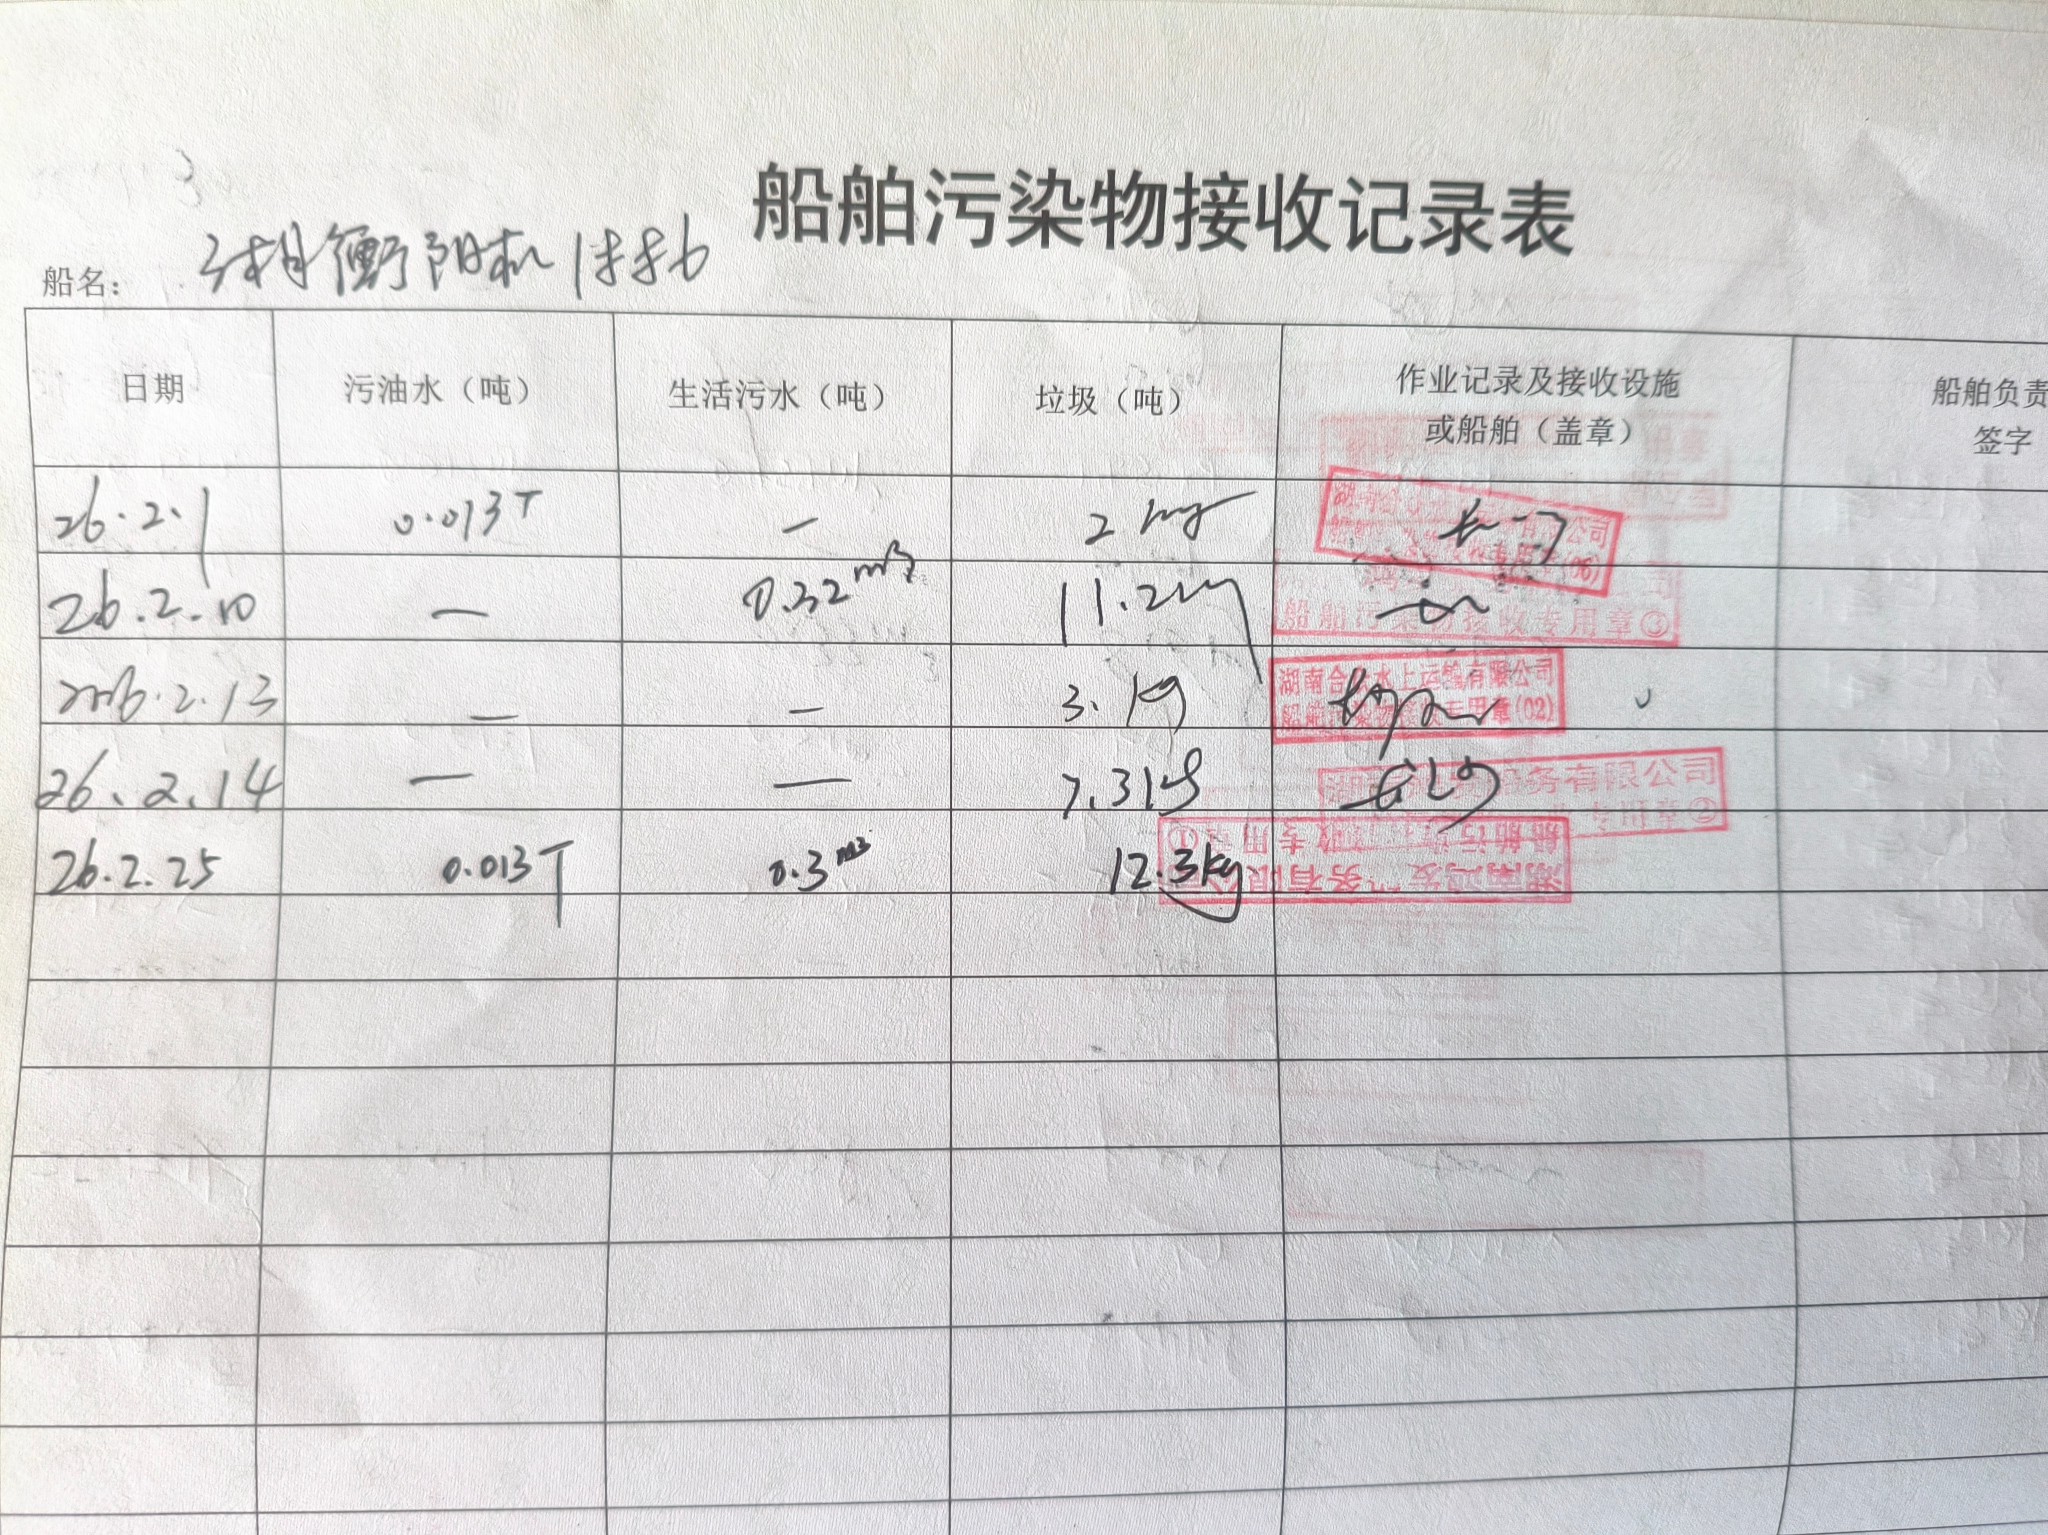 船舶污染物接收记录表
船名： 湖衡阳机
日期 污油水（吨） 生活污水（吨） 垃圾（吨） 作业记录及接收设施或船舶（盖章） 船舶负责 签字
26.2.1 0.013T — 2 kg
26.2.10 — 0.32m3 11.2kg
船舶污染物接收专用章③
2026.2.13 — — 3.1kg
湖南合 水上运输有限公司
专用章(02)
26.2.14 — — 7.31kg
务有限公司
专用章②
26.2.25 0.013T 0.3m3 12.3kg
湖南鸿发 务有限公